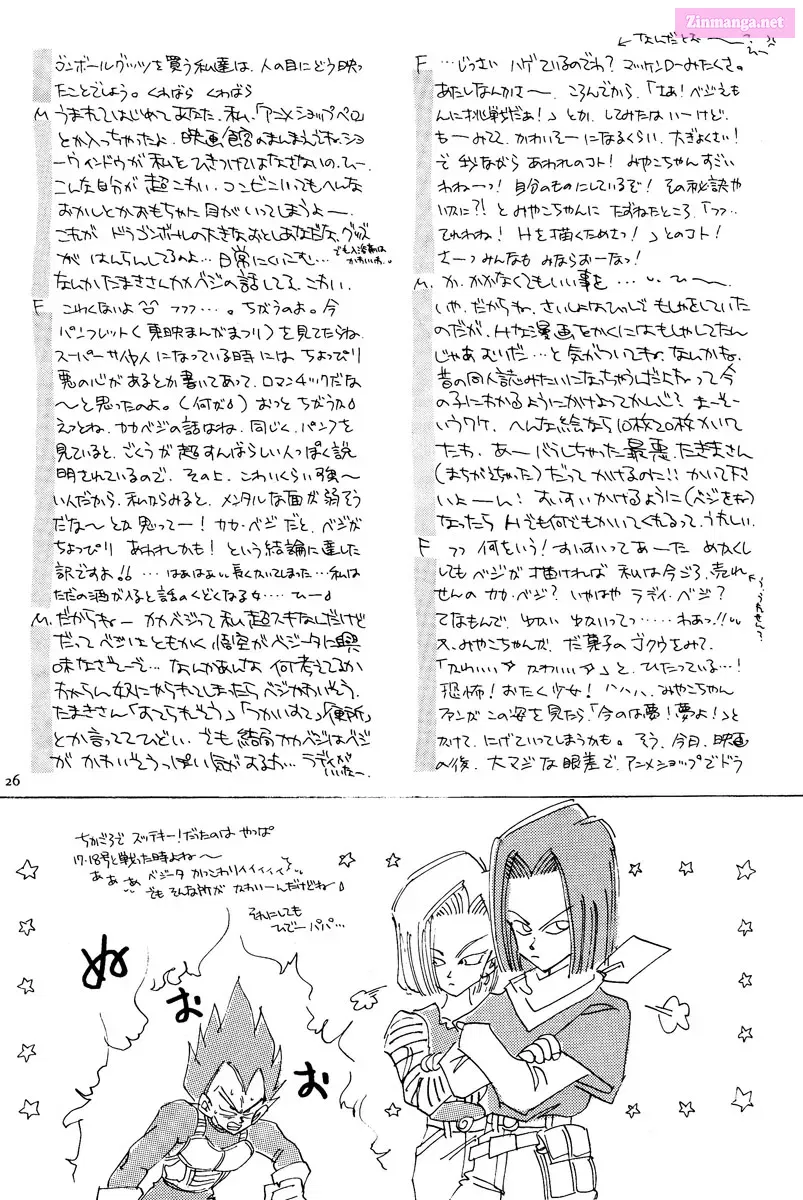 Zinmanga.net
←なんだとぉ〜〜?
F …じっさい ハゲているのでわ? マッケンローみたくさ。
あたしなんかさー、ころんでから、「さあ!ベジえも
んに挑戦だぁ!」とか、してみたはいーけど、
もーみてて、かわいそーになるくらい、大ぎょくさい!
で 我ながら あわれのコト! みやこちゃん すごい
わねーっ! 自分のものにしているぞ! その秘訣や
いかに?! と みやこちゃんに たずねたところ、「フフ‥
てれわね! Hを描くためさっ!」とのコト!
さーっ みんなも みならおーなっ!
M. か、かかなくてもいい事を … ‥ ひー〜。
いや、だからね、さいしょはひっしで もしゃをしていた
のだが、Hな漫画をかくにはもしゃしてたん
じゃあ むりだ…と 気がついてね。なんかね、
昔の同人誌みたいになっちゃうんだよね って今
の子にわかるようにかけよってかんじ? まーそー
いうワケ、へんな絵なら 10枚20枚かいて
たわ、あーバラしちゃった 最悪、たきまさん
(まちがえちゃった)だって かけるのに!! かいて下さ
いよーん! すいすいかけるように(ベジをね)
なったら Hでも何でもかいてくれるって、うれしい。
F フフ 何をいう! すいすいって あーた めかくし
しても ベジが 描ければ 私は今ごろ、売れ
せんの カカ・ベジ? いやはや ラディ・ベジ?
てなもんで、ゆめい ゆめいってっ……わあっ!!
え、みやこちゃんが、だ菓子のゴクウをみて、
「かわいい かわいい」と、ひたっている…!
恐怖! おたく少女! ハハハ、みやこちゃん
ファンが この姿を見たら「今のは夢!夢よ!」と
かけて、にげていってしまうかも。そう、今日、映画
の後、大マジな眼差で、アニメショップでドラ
ゴンボールグッツを買う私達は、人の目にどう映っ
たことでしょう。くわばら くわばら
M. うまれてはじめて あなた、私、「アニメショップペロ」
とか入っちゃったよ、映画館のまんまえでね、ショ
ーウィンドウが私をひきつけてはなさないの、ひー、
こんな自分が 超こわい、コンビニいっても へんな
おかしとか おもちゃに 目がいってしまうよー、
これが ドラゴンボールの大きなおとしあなだな、グッズ
が はんらんしてるのよ…日常にくいこむ…
でも入浴剤は かわいいわ‥
なんか たまきさんカカベジの話してる、こわい、
F こわくないよ フフフ…。ちがうのよ。今
パンフレット(東映まんがまつり)を見てたらね、
スーパーサイヤ人になっている時には ちょっぴり
悪の心があるとか書いてあって、ロマンチックだな
〜と思ったのよ。(何が♪) おっと ちがうわ♪
えっとね、カカベジの話はね、同じく、パンフを
見ていると、ごくうが 超すんばらしい人っぽく説
明されているので、その上、こわいくらい強〜
いんだから、私からみると、メンタルな面が弱そう
だな〜とか思ってー! カカ・ベジだと、ベジが
ちょっぴり あわれかも! という結論に達した
訳ですよ!! …はあはぁい、長くかいてしまった…私は
ただの酒が入ると話のくどくなる女…ひー♪
M. だからねー カカベジって 私 超スキなんだけど
だって ベジはともかく 悟空がベジータに興
味なさそーで… なんかあんな 何考えてるか
わからん奴にかられてしまったら ベジかわいそう、
たまきさん「すてられそう」「つかいすて」「便所」
とか言っててひどい、でも 結局 カカベジはベジ
が かわいそうっぽい 気がするわ… ラディが いいなー、
26
ちかごろで ズッテキー!だったのは やっぱ
17・18号と戦った時よね〜
あぁぁ ベジータ かっこわりィィィィ‥
でも そんな所が かわいーんだけどね♪
それにしても
ひでーパパ…
ぬ
お
お